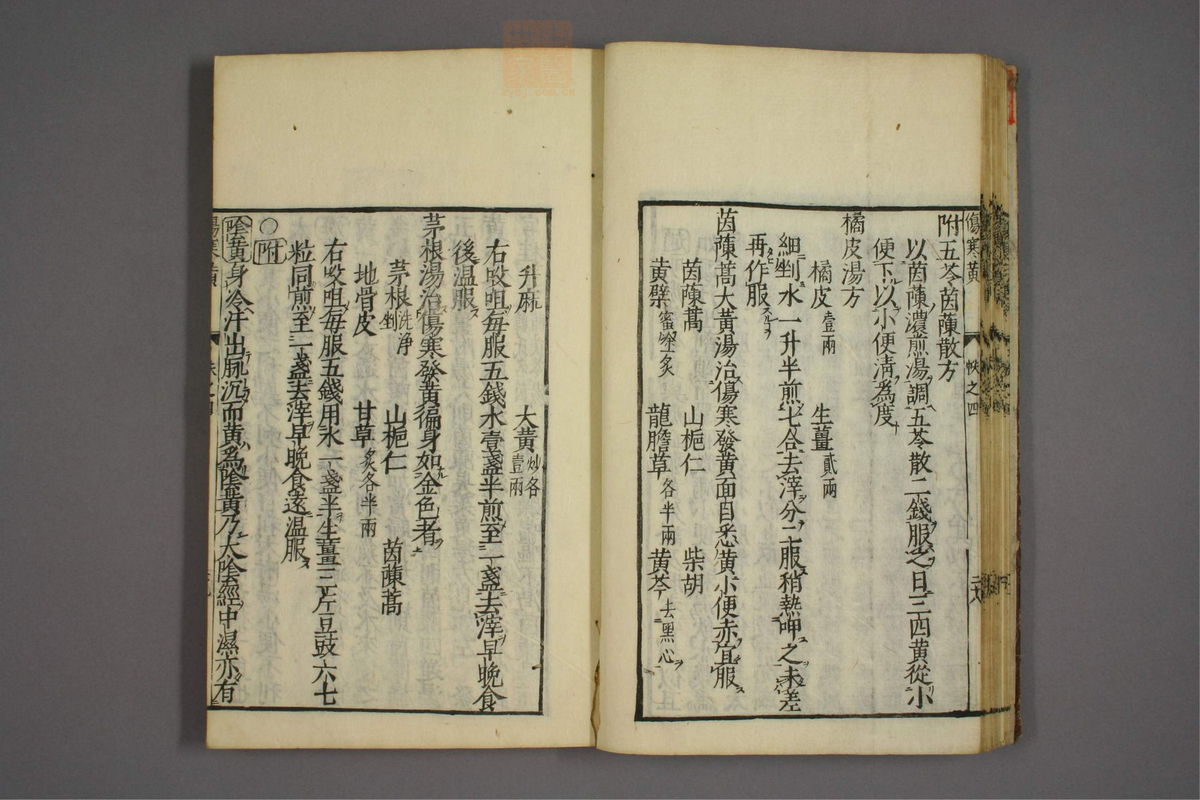 傷寒黄
帙之四
附五苓茵蔯散方
以茵蔯濃煎湯調五苓散二錢服之日三四黄從小
便下以小便清為度
橘皮湯方
橘皮壹兩 生薑貳兩
細剉水一升半煎七合去滓分二服稍熱呷之未差
再作服
茵蔯蒿大黄湯治傷寒發黄面目悉黄小便赤宜服
茵蔯蒿 山梔仁 柴胡
黄蘗蜜塗炙 龍膽草各半兩 黄芩去黑心
升麻 大黄炒各壹兩
右㕮咀每服五錢水壹盞半煎至一盞去滓早晚食
後溫服
茅根湯治傷寒發黄徧身如金色者
茅根洗淨剉 山梔仁 茵蔯蒿
地骨皮 甘草炙各半兩
右㕮咀每服五錢用水一盞半生薑三片豆豉六七
粒同煎至一盞去滓早晚食遠溫服
○附
陰黄身冷汗出脈沉而黄名陰黄乃太陰經中濕亦有
傷寒黄